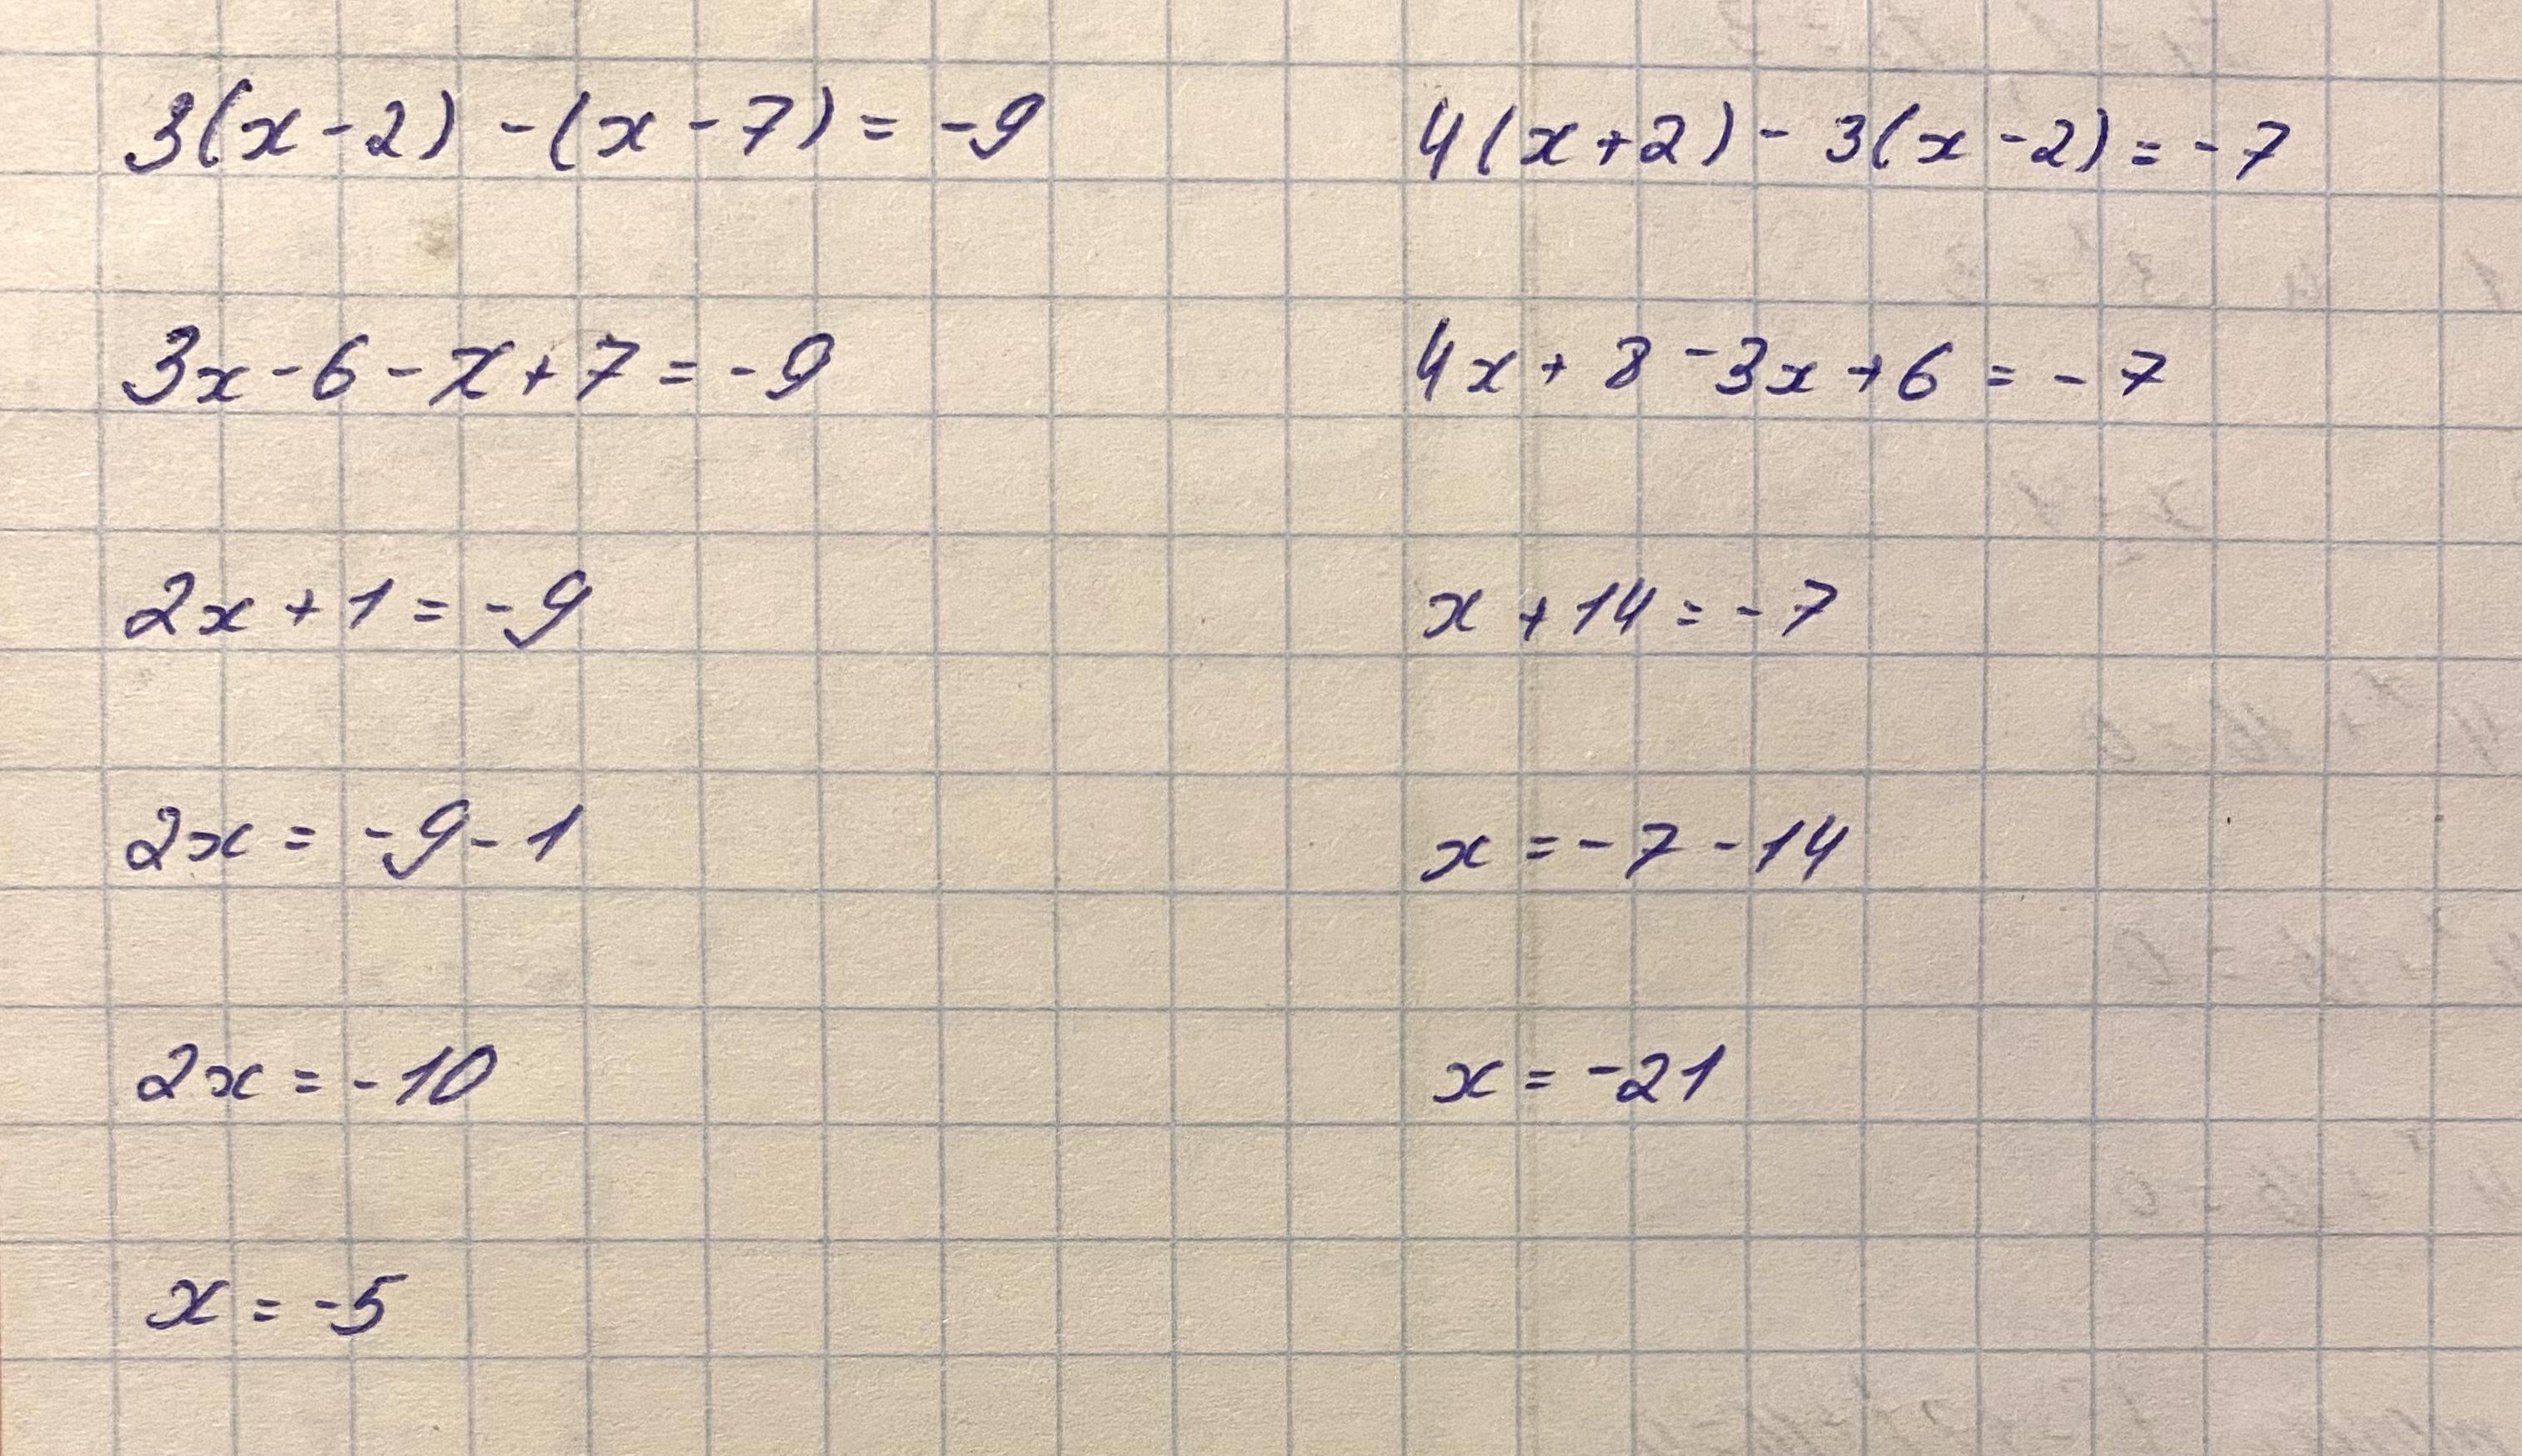 3(x-2) -(x-7) = -9
3x-6-x+7=-9
2x+1=-9
2x=-9-1
2x=-10
x=-5
4(x+2)-3(x-2)=-7
4x+8-3x+6=-7
x+14=-7
x=-7-14
x=-21